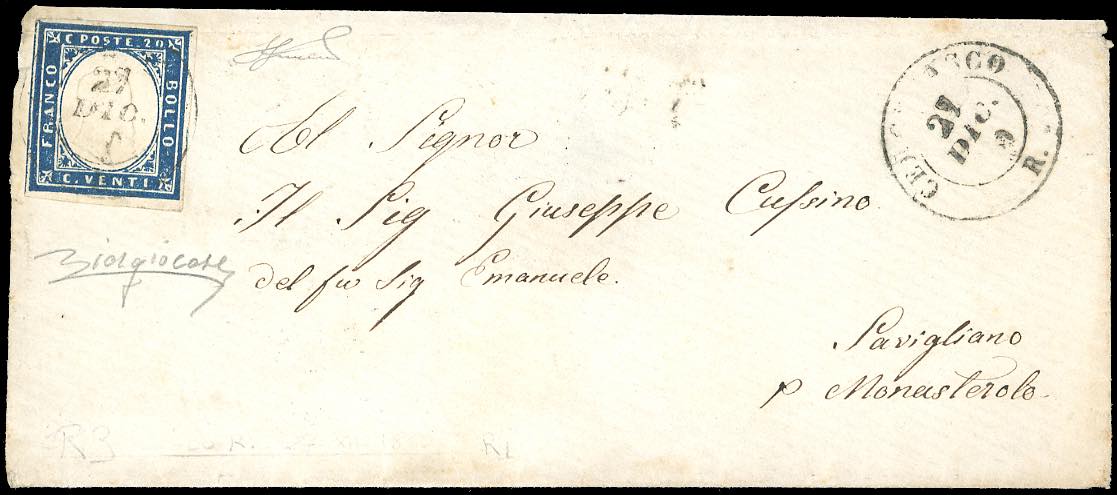 C. POSTE. 20
FRANCO
BOLLO
C. VENTI
27
DIC.
27
DIC.
R.
Al Signor
Il Sig Giuseppe Cussino
del fu Sig Emanuele.
Savigliano
p Monasterolo
R3
R1